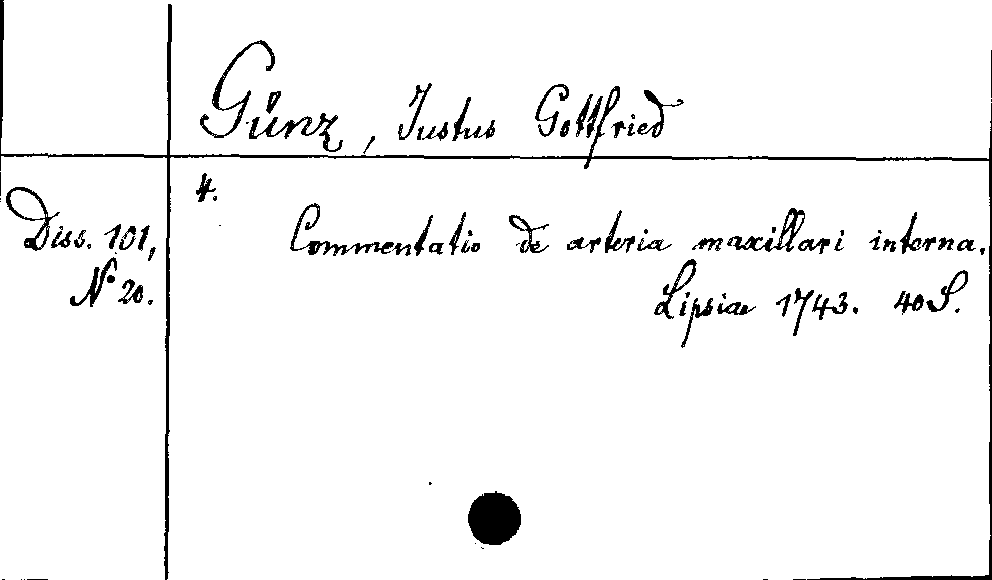 Günz, Justus Gottfried
4.
Diss. 101,
No 20.
Commentatio de arteria maxillari interna.
Lipsiae 1743. 40 S.